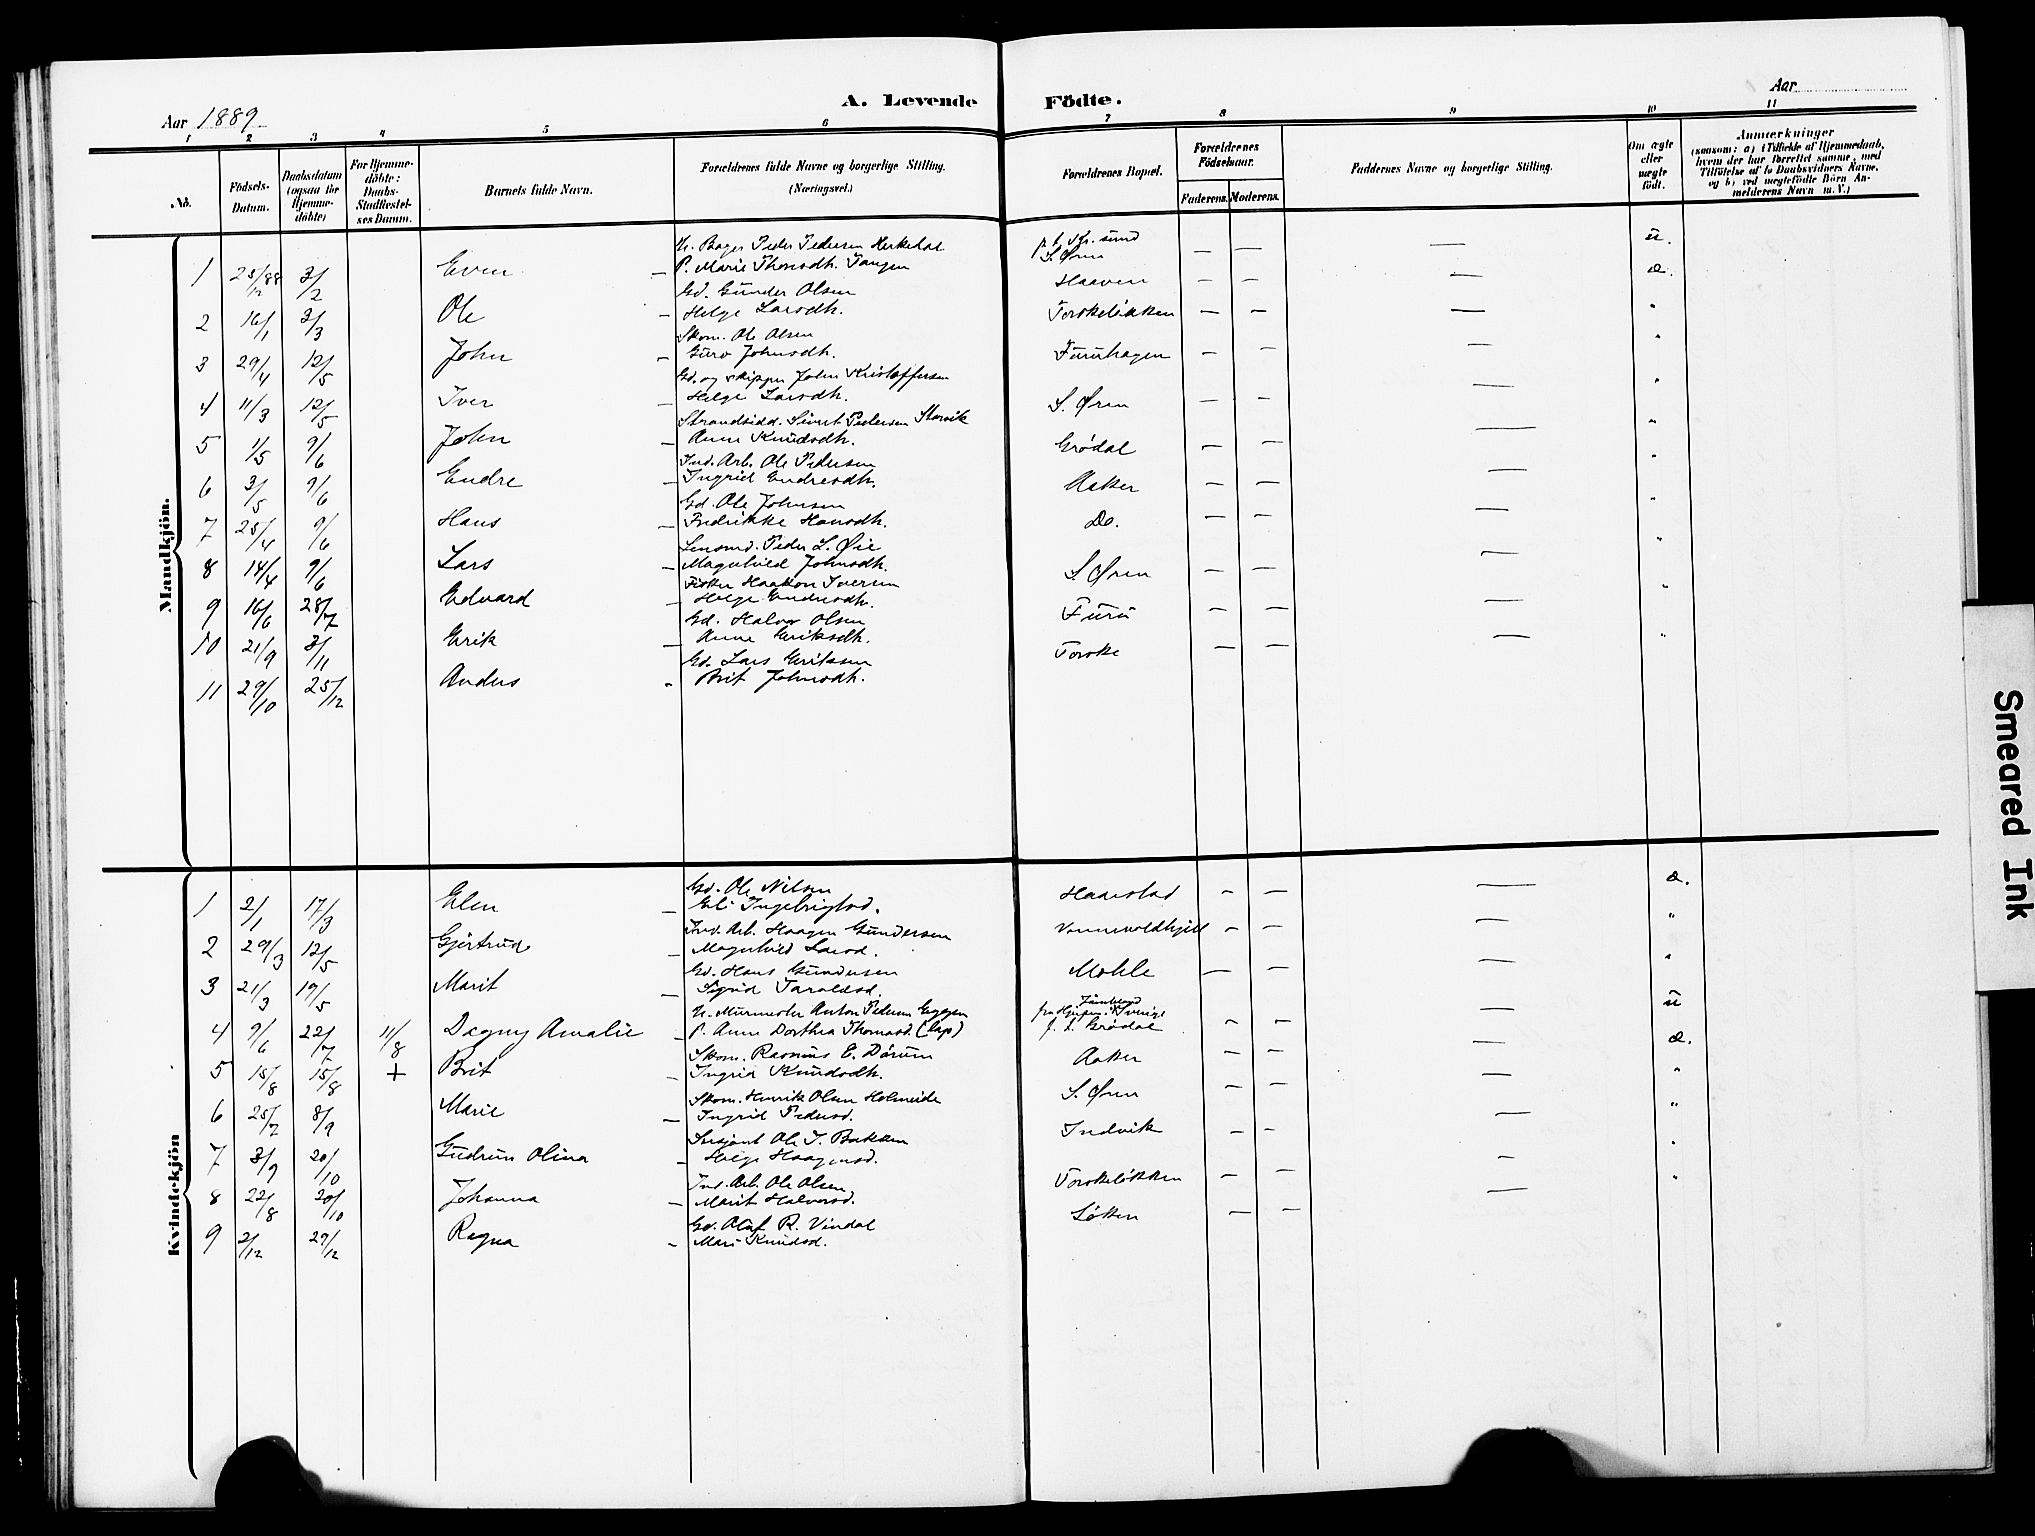 Aar 1889.
A. Levende
Födte.
Aar
1 2 3 4 5 6 7 8 9 10 11
No.
Födsels-Datum.
Daabsdatum (ogsaa for Hjemme-döbte)
For Hjemme-döbte: Daabs-Stadfæstel-ses Datum.
Barnets fulde Navn.
Forældrenes fulde Navne og borgerlige Stilling. (Næringsvei.)
Forældrenes Bopæl.
Forældrenes Födselsaar.
Faderens. Moderens.
Faddernes Navne og borgerlige Stilling.
Om ægte eller uægte født.
Anmærkninger
(saasom: a) i Tilfælde af Hjemmedaab, hvem der har forrettet samme, med Tilföielse af to Daabsvidners Navne, og b) ved uægtefödte Börn An-melderens Navn m. V.)
Mandkjön.
U. Bager Peder Pedersen Herkedal p. t. Kr. sund — — — u.
1 25/12 88 3/2 Even — P. Marie Thomsdh. Tangen S. Øren
Gd. Gunder Olsen Haaven — — — æ.
2 16/1 3/3 Ole — Helge Larsdh.
Skom. Ole Olsen Torskeløkken — — — "
3 29/4 12/5 John — Guro Johnsdh.
Gd. og skipper John Kristoffersen Furuhagen — — — "
4 11/3 12/5 Iver — Helge Larsdh.
Strandsidd. Sivert Pedersen Storvik S. Øren — — — "
5 1/5 9/6 John — Anne Knudsdh.
Ind. Arb. Ole Pedersen Grødal — — — "
6 3/5 9/6 Endre — Ingrid Endresdh.
Gd. Ole Johnsen Aaker — — — "
7 25/4 9/6 Hans — Fredrikke Hansdh.
Lensmd. Peder L. Øie Do. — — — "
8 14/4 9/6 Lars — Magnhild Johnsdh.
Fisker Haakon Iversen S. Øren — — — "
9 16/6 28/7 Edvard — Helge Endresdh.
Gd. Halvor Olsen Furu — — — "
10 21/9 3/11 Erik — Anne Eriksdh.
Gd. Lars Eriksen Torske — — — "
11 29/10 25/12 Anders - Brit Johnsdh.
Kvindekjön
Gd. Ole Nilsen Haarstad — — — æ.
1 2/1 17/3 Elen — Eli Ingebrigtsd.
Ind. Arb. Haagen Gundersen — — — "
2 29/3 12/5 Gjertrud — Magnhild Larsd.
Gd. Hans Gundersen Mohle — — — "
3 21/3 19/5 Marit — Sigrid Taraldsd.
U. Murmester Anton Pedersen Eggen Jämtland Sverige — — — u
4 9/6 22/7 11/8 Dagny Amalie — P. Anne Dorthea Thomasd. (Lap) p. t. Grødal
Skom. Rasmus E. Dørum Aaker — — — æ.
5 15/8 15/8 + Brit — Ingrid Knudsdh.
Skom. Henrik Olsen Holmeide S. Øren — — — "
6 25/7 8/9 Marie — Ingrid Pedersd.
Sersjant Ole I. Bakken Indvik — — — "
7 3/9 20/10 Gudrun Olina — Helge Haagensd.
Ind. Arb. Ole Olsen Torskeløkken — — — "
8 22/8 20/10 Johanna — Marit Halvorsd.
Gd. Oluf R. Vindal Løkken — — — "
9 2/12 29/12 Ragna - Mari Knudsd.
Smeared Ink